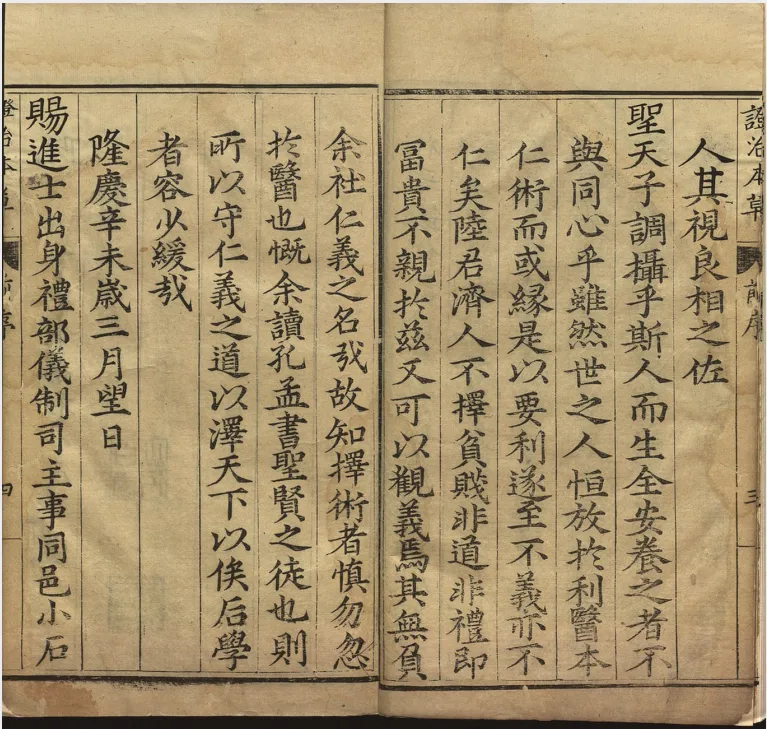 證治本草
前序
三
人其視良相之佐
聖天子調攝乎斯人而生全安養之者不
與同心乎雖然世之人恒放於利醫本
仁術而或緣是以要利遂至不義亦不
仁矣陸君濟人不擇貧賤非道非禮即
冨貴不親於兹又可以觀義焉其無負
余社仁義之名㢤故知擇術者慎勿忽
於醫也慨余讀孔孟書聖賢之徒也則
所以守仁義之道以澤天下以俟后學
者容少緩㢤
隆慶辛未歲三月望日
賜進士出身禮部儀制司主事同邑小石
證治本草
前序
四